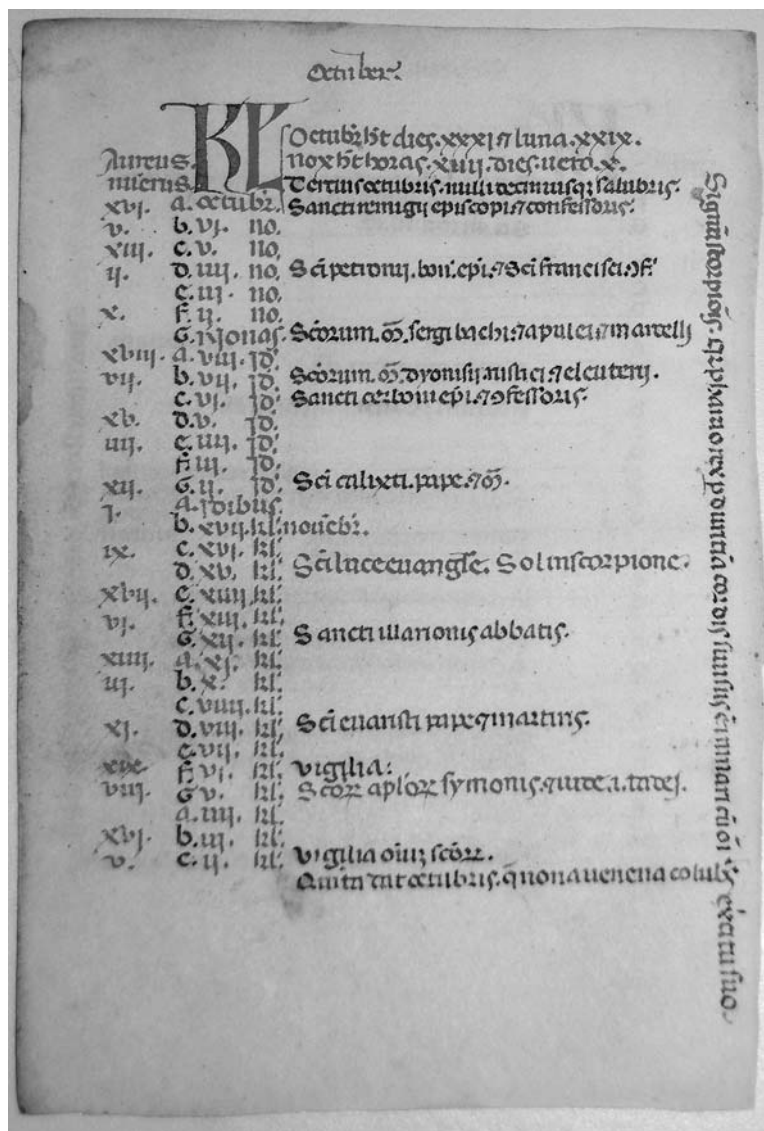 Octuber.
KL Octubr. ht dies. xxxi ⁊ luna. xxix.
Aureus. nox ht horas. xiiij. dies. uero. x.
nu͛erus. Tercius octubris. nulli decimusq; salubris.
xvj. a. octubr. Sancti remigij episcopi ⁊ confessoris.
v. b. vj. no.
xiij. c. v. no.
ij. d. iiij. no. Sci petronij. bon. epi. ⁊ Sci francisci. ɔf.
e. iij. no.
x. f. ij. no.
G. Nonas. Scorum. m. sergi bachi. ⁊ apulei ⁊ marcelli
xviij. a. viij. Jd.
vij. b. vij. Jd. Scorum. m. dyonisij. rustici ⁊ eleuterij.
c. vj. Jd. Sancti cerbonii epi. ⁊ ɔfessoris.
xv. d. v. Jd.
iiij. e. iiij. Jd.
f. iij. Jd.
xij. G. ij. Jd. Sci calixti. pape. ⁊ m.
j. a. Jdibus.
b. xvij. kl. nouebr.
ix. c. xvj. kl.
d. xv. kl. Sci luce euangte. Sol in scorpione.
xvij. e. xiiij. kl.
vj. f. xiij. kl.
G. xij. kl. Sancti illarionis abbatis.
xiiij. a. xj. kl.
iij. b. x. kl.
c. viiij. kl.
xj. d. viij. kl. Sci euaristi pape ⁊ martiris.
e. vij. kl.
xix. f. vj. kl. Vigilia.
viij. G. v. kl. Scorz aplorz symonis. ⁊ iude. i. tadej.
a. iiij. kl.
xvj. b. iij. kl.
v. c. ij. kl. Vigilia oium scorz.
Quinta dat octubris. q nona uenena colubris
Signu scorpionis. qr pharao rex p duritia cordis sui sus e in mari cu oi exercitu suo